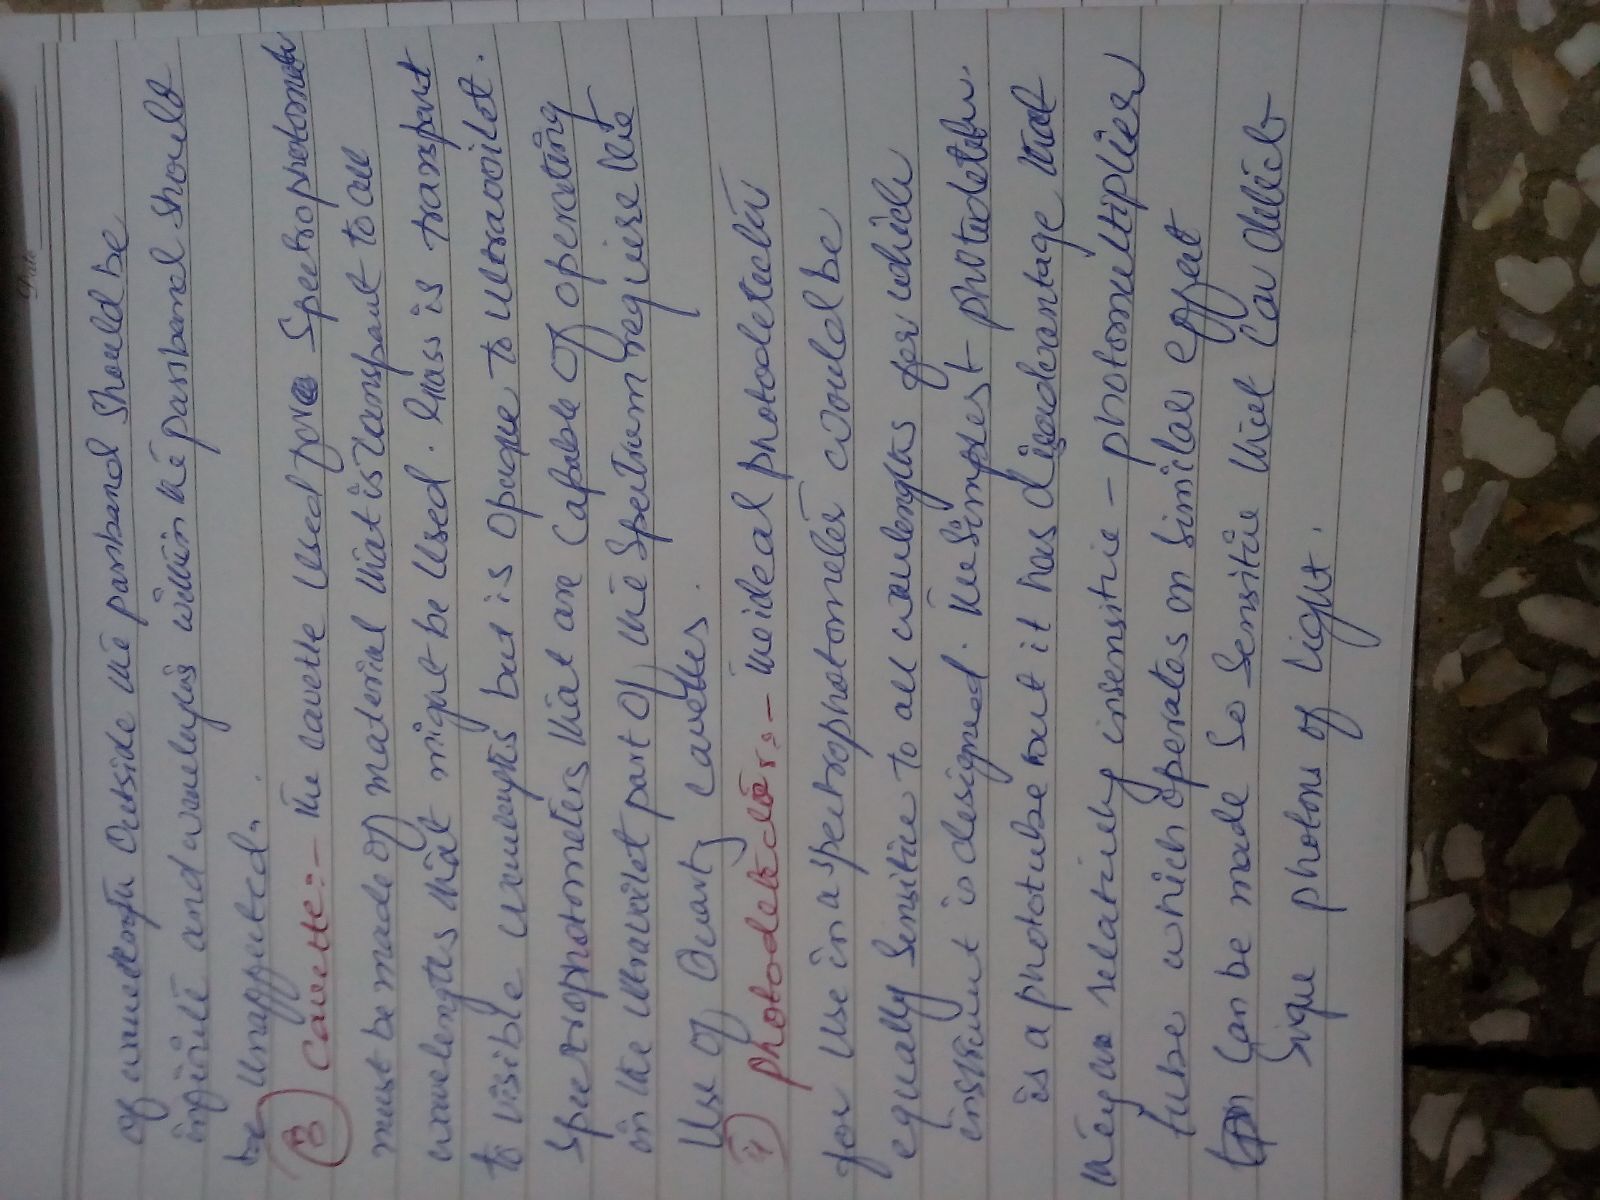 Date
of wavelength Outside the passband should be
infinite and wavelengths within the passband should
be Unaffected.
3 Cavette:- The cavette Used for Spectrophotometer
must be made of material that is transpant to all
wavelengths that might be Used. Glass is transpant
to visible wavelengths but is opaque to ultravoilet.
Spectrophotometers that are Capable Of operating
in the ultravoilet part Of the Spectrum requise the
Use Of Quartz cavettes.
4 Photodetectors - The ideal photodetector
for Use in a spectrophotometer would be
equally Sensitive to all wavelengths for which
instrument is designed. The Simplest photodetector
is a phototube but it has disadvantage that
they are relatively insensitive - photomultiplier
tube which operates on Similar effect
Can be made So Sensitive that can detect
Single photons of light.